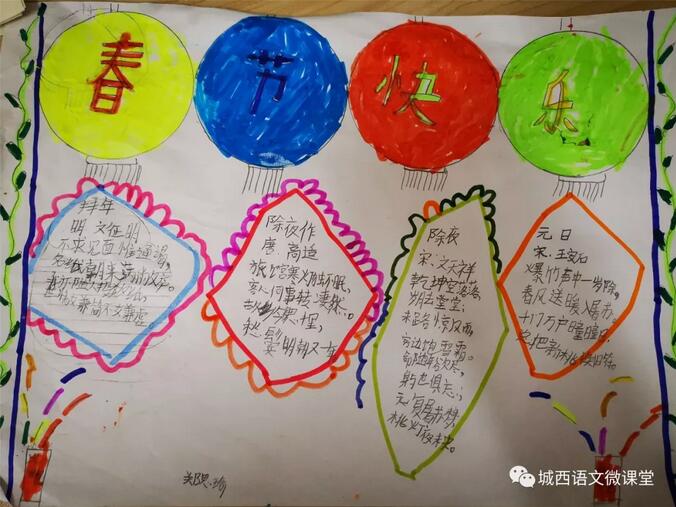 春节快乐
拜年
明 文征明
不求见面惟通谒,
除夜作
唐 高适
旅馆寒灯独不眠,
客人何事转凄然。
愁鬓
明朝又一年
除夜
宋:文天祥
乾坤空落落,
岁去堂堂;
末路惊风雨,
穷边饱雪霜。
命随年欲尽,
身世俱忘;
无复屠苏梦,
挑灯夜未央。
元日
宋:王安石
爆竹声中一岁除,
春风送暖入屠苏,
千门万户曈曈日,
总把新桃换旧符。
城西语文微课堂